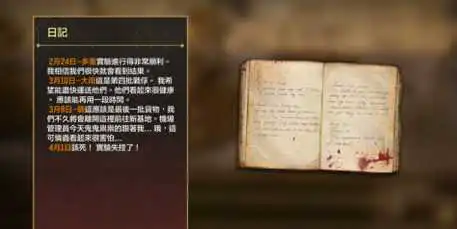 日記
2月24日-多雲實驗進行得非常順利。
我相信我們很快就會看到結果。
3月10日-大雨這是第四批戰俘。我希
望能盡快運送他們。他們看起來很健康
。應該能再用一段時間。
3月8日-晴這應該是最後一批貨物,我
們不久將會離開這裡前往新基地。機場
管理員今天鬼鬼祟祟的跟著我... 唉,這
可憐蟲看起來很害怕...
4月1日該死!實驗失控了!